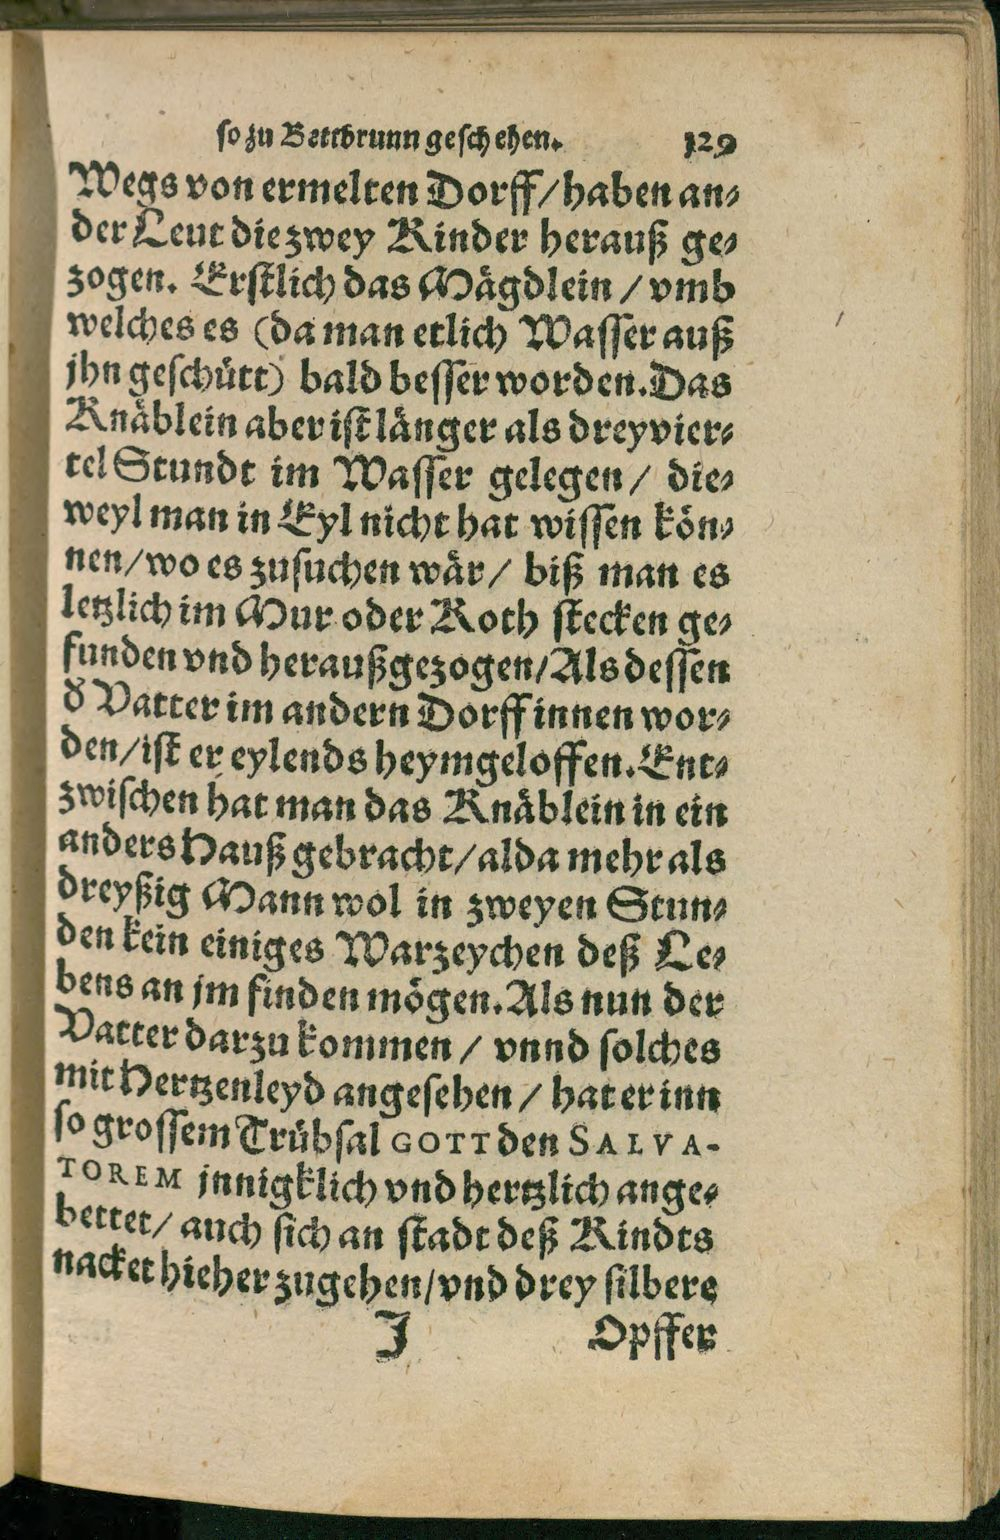 so zu Bettbrunn geschehen. 129
Wegs von ermelten Dorff/haben an⸗
der Leut die zwey Kinder herauß ge⸗
zogen. Erstlich das Mägdlein / vmb
welches es (da man etlich Wasser auß
jhn geschütt) bald besser worden. Das
Knäblein aber ist länger als dreyvier⸗
tel Stundt im Wasser gelegen / die⸗
weyl man in Eyl nicht hat wissen kön⸗
nen/wo es zusuchen wär/ biß man es
letzlich im Mur oder Koth stecken ge⸗
funden vnd heraußgezogen/Als dessen
d̕ Vatter im andern Dorff innen wor⸗
den/ist er eylends heymgeloffen. Ent⸗
zwischen hat man das Knäblein in ein
anders Hauß gebracht/alda mehr als
dreyßig Mann wol in zweyen Stun⸗
den kein einiges Warzeychen deß Le⸗
bens an jm finden mögen. Als nun der
Vatter darzu kommen / vnnd solches
mit Hertzenleyd angesehen / hat er inn
so grossem Trübsal GOTT den SALVA-
TOREM jnnigklich vnd hertzlich ange⸗
bettet/ auch sich an stadt deß Kindts
nacket hieher zugehen/vnd drey silbere
J Opffer